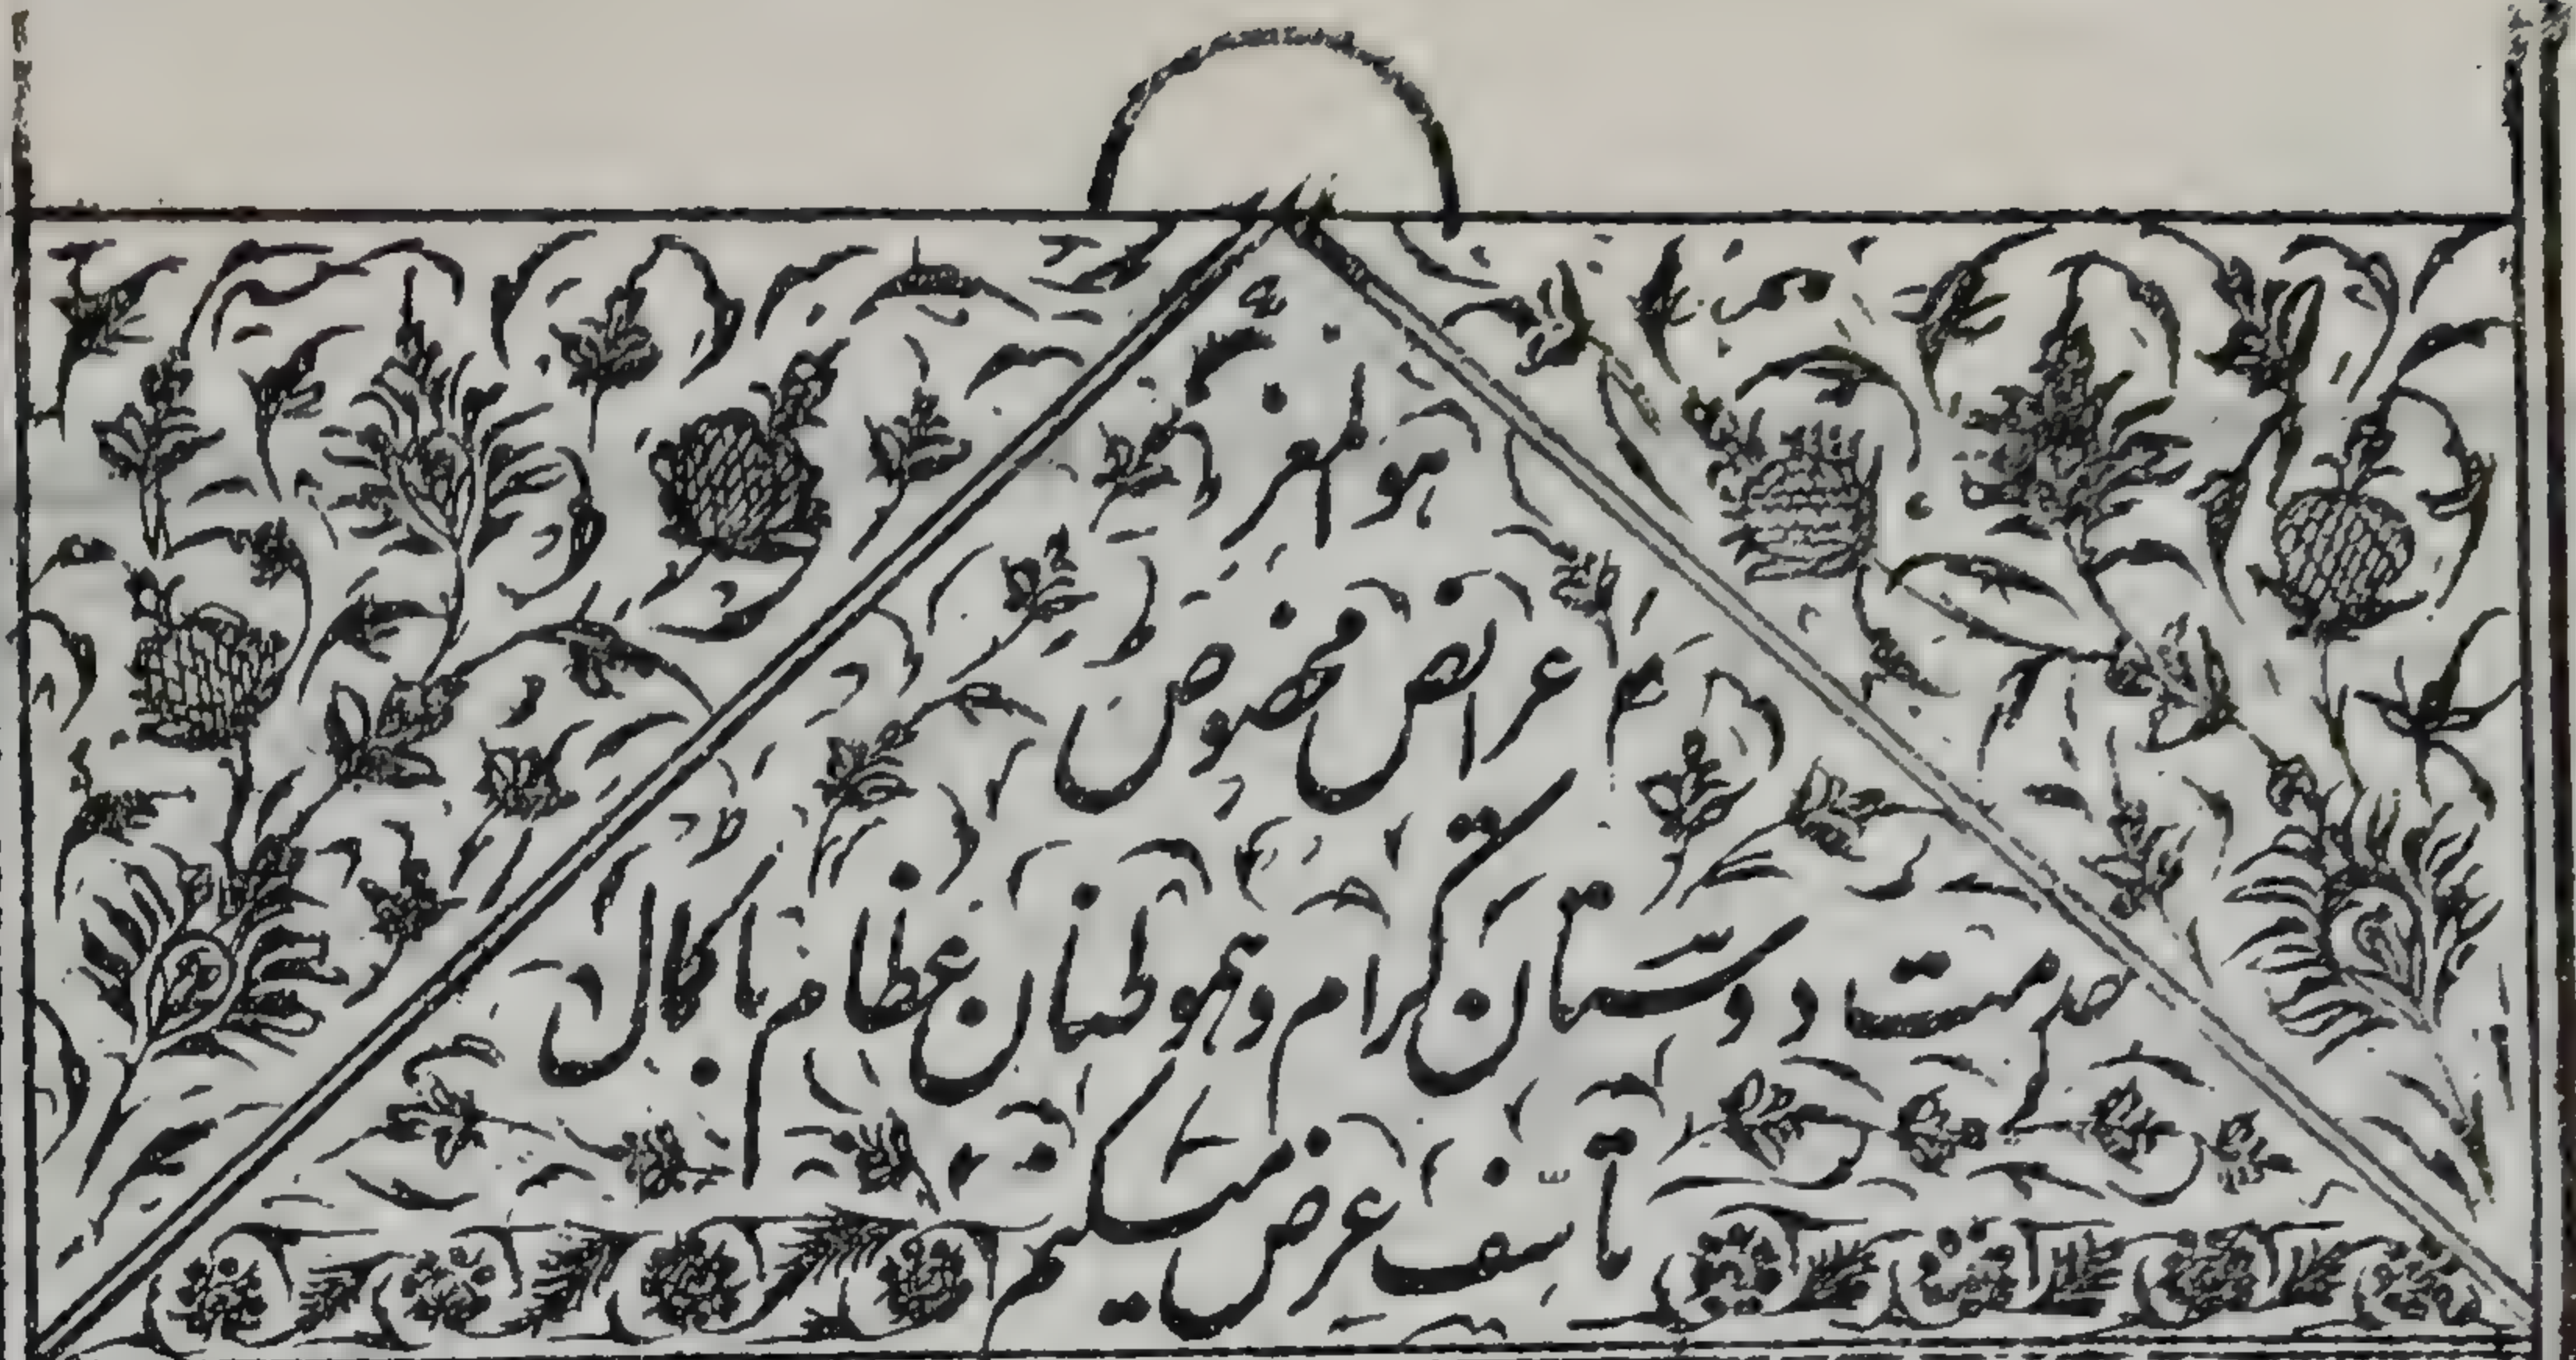 هو المعز
عرائض مخصوص
خدمت دوستان گرام و هموطنان عظام با کمال
تأسف عرض میکنیم